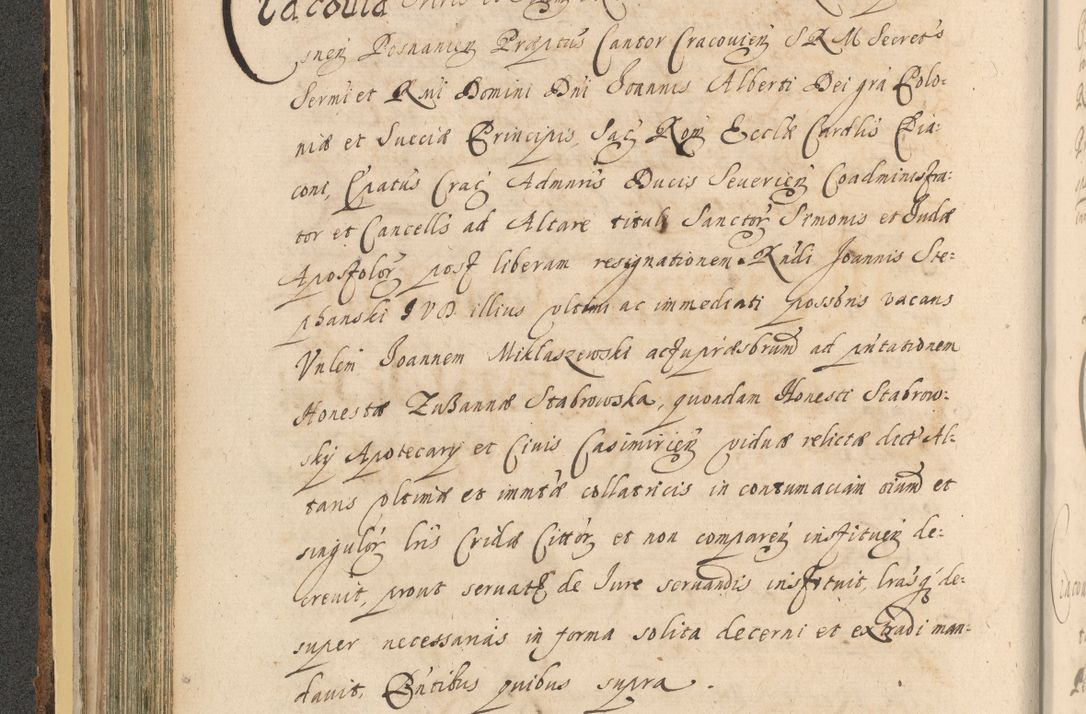 Cracovia
snen Posnanien Præptus Cantor Cracovien S R M Secretˢ
Sermi et Rmi Domini Dni Joannis Alberti Dei gra Polo-
niæ et Sueciæ Principis, Sac Rom Ecclæ Cardlis Dia-
coni, Epatus Crac Admnris Ducis Severien Coadministra-
tor et Cancells ad Altare tituli Sanctor Simonis et Judæ
Apostolor post liberam resignationem Rndi Joannis Ste-
phanski I V D illius ultimi ac immediati possoris vacans
Vnlem Joannem Miklaszewski actu præsbrum ad pntationem
Honestæ Zußannæ Stabrowska, quondam Honesti Stabrow-
sky Apotecary et Civis Casimirien viduæ relictæ dicti Al-
taris ultimæ et immtæ collatricis in contumaciam oium et
singulor lris Cridæ Cittor et non comparen instituen de-
crevit, prout servatis de Jure servandis instituit, lrasq de-
super necessarias in forma solita decerni et extradi man-
davit, Pntibus quibus supra.